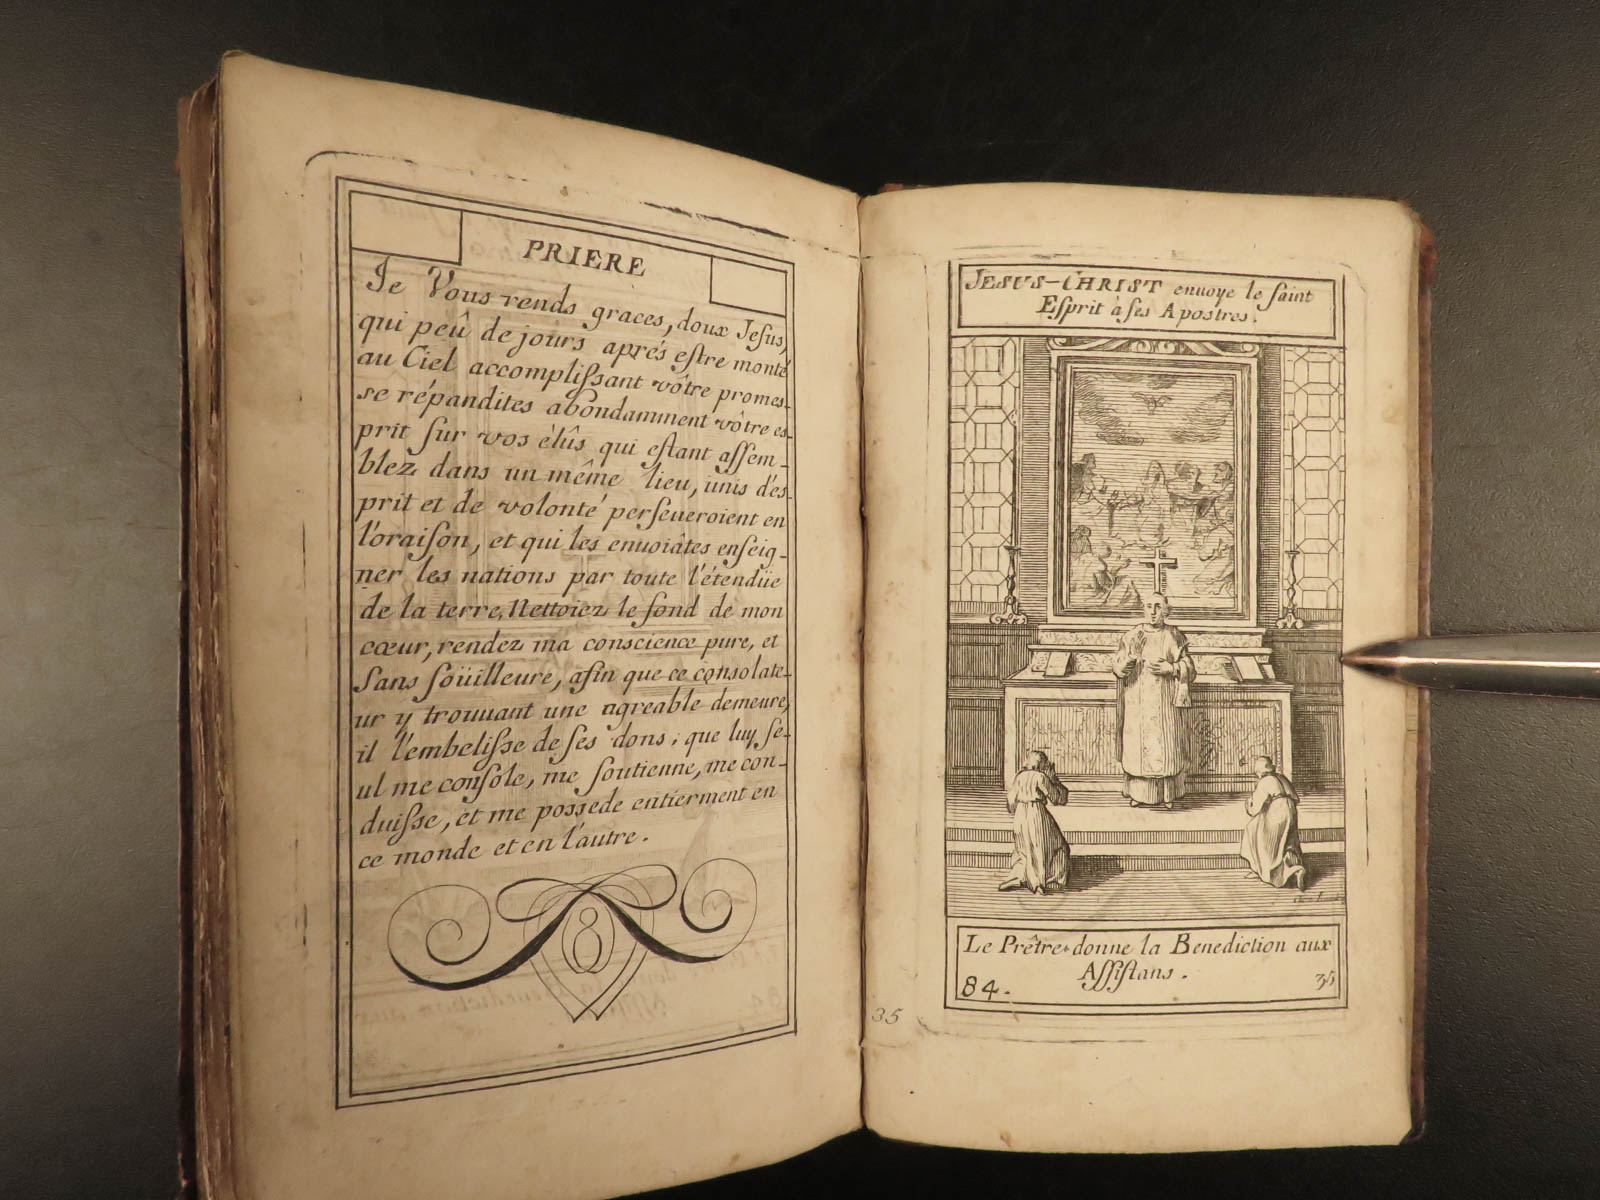 PRIERE
Je Vous rends graces, doux Jesus,
qui peû de jours aprés estre monté
au Ciel accomplissant vôtre promes-
se répandites abondamment vôtre es-
prit sur vos élûs qui estant assem-
blez dans un même lieu, unis d'es-
prit et de volonté perseueroient en
l'oraison, et qui les enuoiâtes enseig-
ner les nations par toute l'étendüe
de la terre, Nettoiez le fond de mon
cœur, rendez ma conscience pure, et
sans soüilleure, afin que ce consolate-
ur y trouuant une agreable demeure,
il l'embelisse de ses dons, que luy se-
ul me console, me soutienne, me con-
duisse, et me possede entierment en
ce monde et en l'autre.
JESUS-CHRIST enuoye le saint
Esprit à ses Apostres.
Le Prêtre donne la Benediction aux
Assistans.
84. 35
35